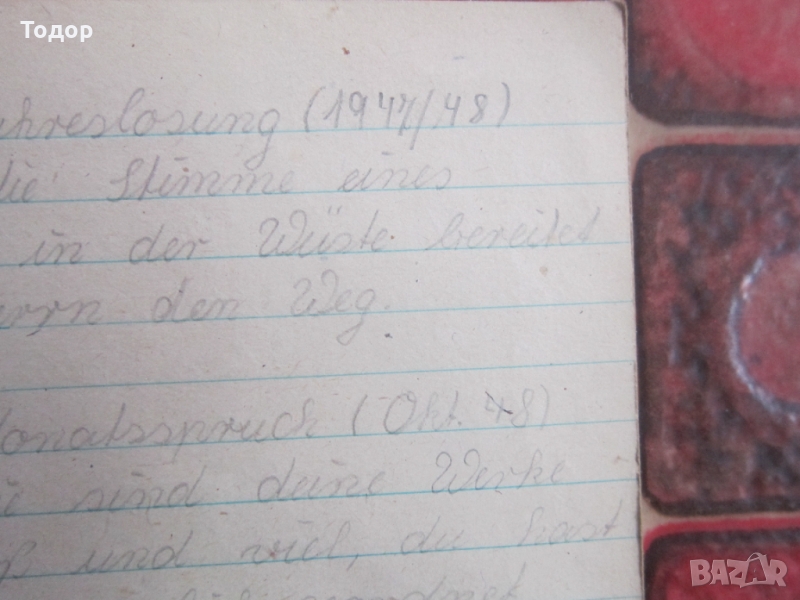 Todor
ahreslosung (1947/48)
die Stimme eines
in der Wüste: bereitet
errn den Weg.
Monatsspruch (Okt. 48)
sind deine Werke
und viel, du hast
BAZAR